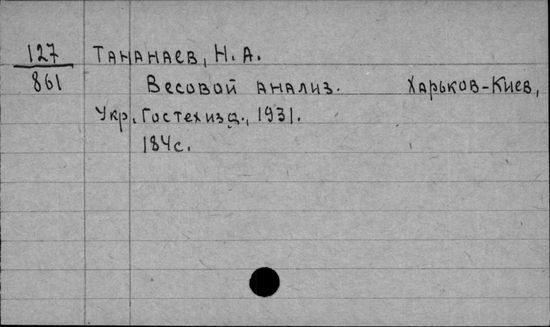 127 Тананаев, Н. А.
861 Весовой анализ. Харьков-Киев,
Укр. Гостехизд., 1931.
184с.